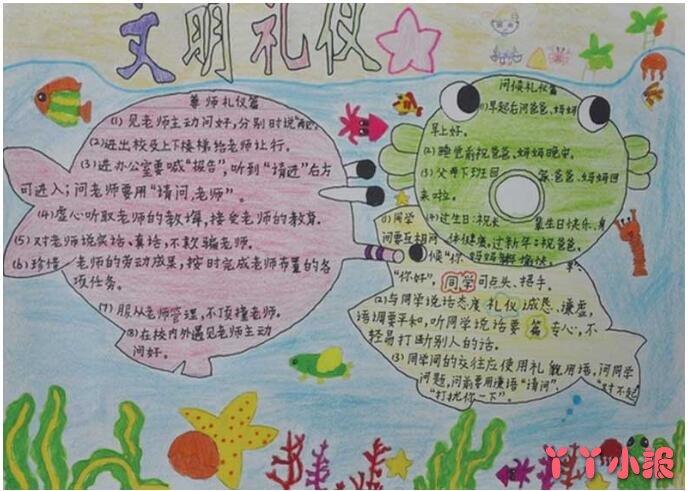 文明礼仪
尊师礼仪篇
(1) 见老师主动问好，分别时说
(2)进出校及上下楼梯给老师让行。
(3)进办公室要喊“报告”，听到“请进”后方
可进入；问老师要用“请问，老师”。
(4)虚心听取老师的教
(5)对老师说实话、真话，不欺骗老师。
(6)珍惜老师的劳动成果，按时完成老师布置的各
项任务。
(7)服从老师管理，不顶撞老师。
(8)在校内外遇见老师主动
问好。
问候礼仪篇
(1)早起后问爸爸、妈妈
早上好。
(2)睡觉前祝爸爸、妈妈晚安。
(3)父母下班回 爸爸、妈妈回
来啦。
(4)过生日：祝 生日快乐、身
体健康，过新年：祝爸爸、
妈妈 愉快
同学礼仪篇
(1)同学
间要互相问
候“你
“你好”， 可点头、招手。
(2)与同学说话态度诚恳、谦虚，
语调要平和，听同学说话要专心，不
轻易打断别人的话。
(3)同学间的交往应使用礼貌用语，问同学
问题，问前要用谦语“请问”、“对不起
“打扰你一下”。
丫丫小报